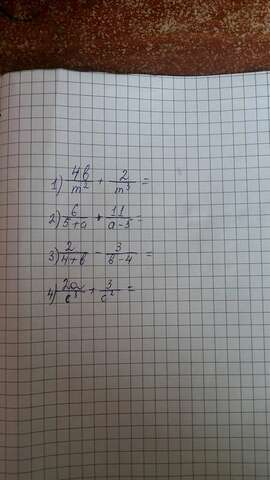 1) 4b/m² + 2/m³ =
2) 6/5+a + 11/a-5 =
3) 2/4+b - 3/b-4 =
4) 2a/c³ + 3/c² =